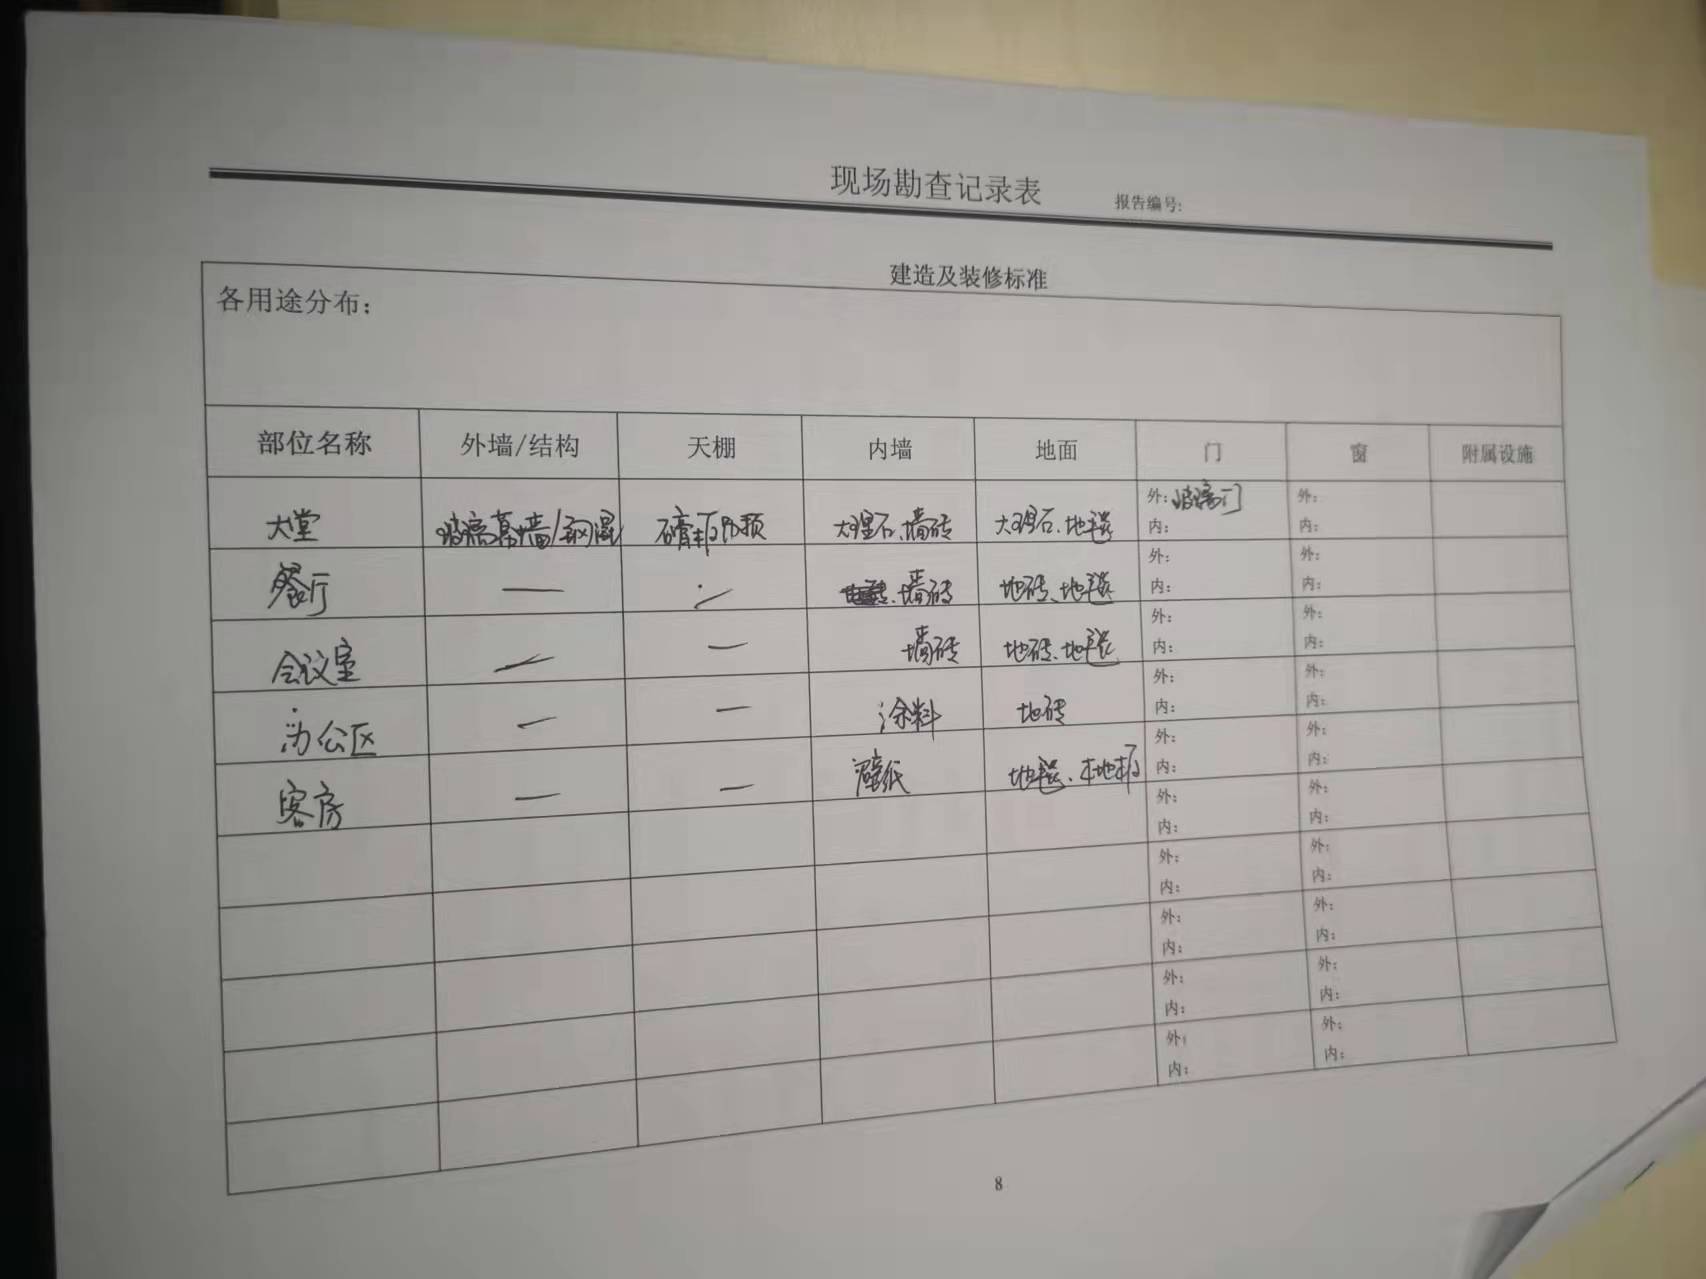 现场勘查记录表 报告编号:
建造及装修标准
各用途分布:
部位名称 外墙/结构 天棚 内墙 地面 门 窗 附属设施
大堂 玻璃幕墙/钢混 石膏板吊顶 大理石、墙砖 大理石、地毯 外: 玻璃门 外:
内: 内:
餐厅 — — 、墙砖 地砖、地毯 外: 外:
内: 内:
会议室 — — 墙砖 地砖、地毯 外: 外:
内: 内:
办公区 — — 涂料 地砖 外: 外:
内: 内:
客房 — — 壁纸 地毯、木地板 外: 外:
内: 内:
外: 外:
内: 内:
外: 外:
内: 内:
外: 外:
内: 内:
外: 外:
内: 内:
外: 外:
内: 内:
8